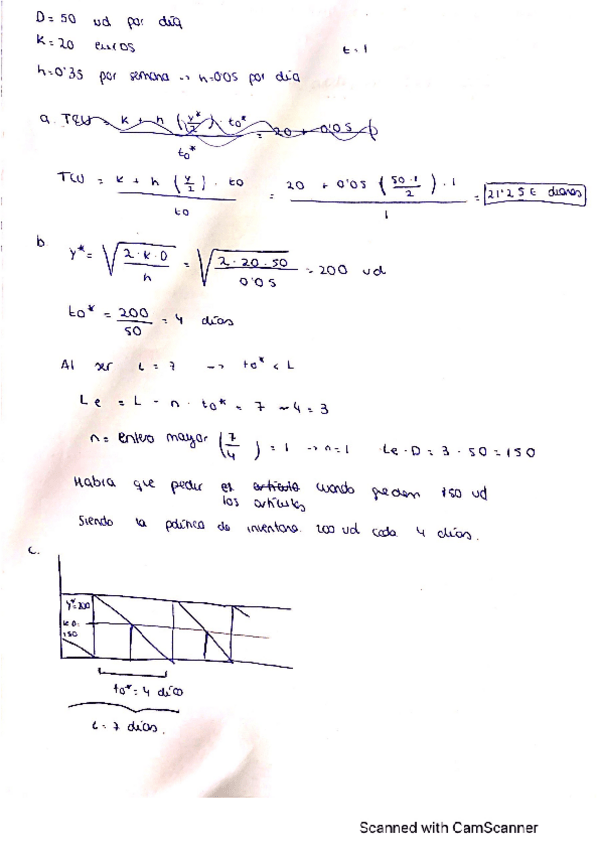 D = 50 ud por día
K = 20 euros
t = 1
h = 0'35 por semana → h = 0'05 por día
a. TCU = K + h (y*/2) · to* / to* = 20 + 0'05 (
TCU = K + h (y/2) · to / to = 20 + 0'05 (50·1/2) · 1 / 1 = 21'25 € diarios
b y* = √(2·K·D / h) = √(2·20·50 / 0'05) = 200 ud
to* = 200/50 = 4 días
Al ser L = 7 → to* < L
Le = L - n · to* = 7 - 4 = 3
n = entero mayor (7/4) = 1 → n = 1 Le·D = 3 · 50 = 150
Habría que pedir el artículo cuando queden 150 ud
los artículos
Siendo la política de inventario 200 ud cada 4 días.
c.
y* = 200
150
to* = 4 días
L = 7 días.
Scanned with CamScanner